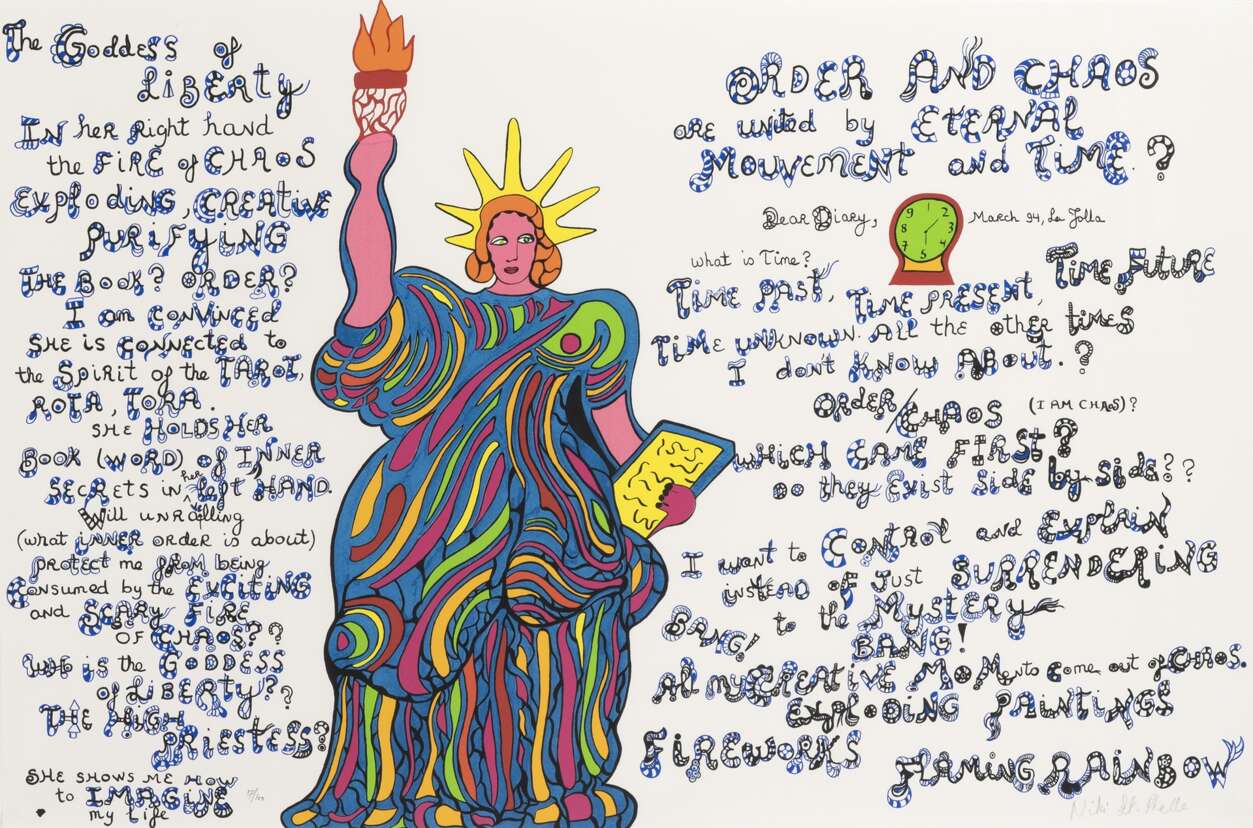 The Goddess of
LiBERTY
IN her Right hand
the FIRE of CHAOS
Exploding, CREATIVE
PURIFYING
THE BOOK? ORDER?
I am CONVINCED
SHE is connected to
the Spirit of the TAROT,
ROTA, TORA.
SHE HOLDS HER
BOOK (WORD) of INNER
SECRETS in her left HAND.
Will UNRALLING
(what INNER order is about)
protect me from being
Consumed by the EXCITING
and SCARY FIRE
OF CHAOS??
Who is the GODDESS
of LiBERTY??
THE HIGH
PRIESTESS?
SHE SHOWS ME HOW
to IMAGINE
my life
ORDER AND CHAOS
are united by ETERNAL
MOUVEMENT and TIME.?
Dear Diary,
March 94, La Jolla
9 1 2
8 3
7 4
5
what is Time?
TIME PAST, TIME PRESENT, TIME FUTURE
TIME UNKNOWN. All the other times
I don't KNOW ABOUT.?
ORDER/CHAOS (I AM CHAOS)?
WHICH CAME FIRST?
oo they Exist Side by side??
I want to CONTROL and EXPLAIN
instead of just SURRENDERING
to the MYSTERY
BANG! BANG!
All my CREATIVE MOMents come out of CHAOS.
Exploding PAINTINGS
FIREWORKS
FLAMING RAINBOW
Niki St. Phalle